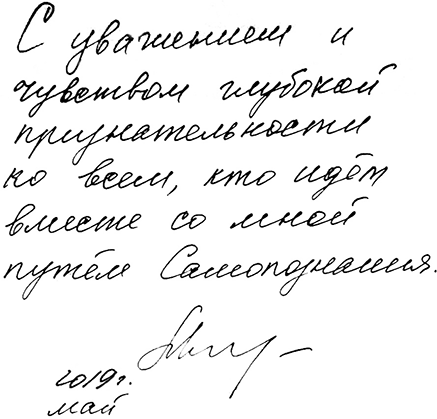 С уважением и
чувством глубокой
признательности
ко всем, кто идём
вместе со мной
путём Самопознания.
2019г.
май